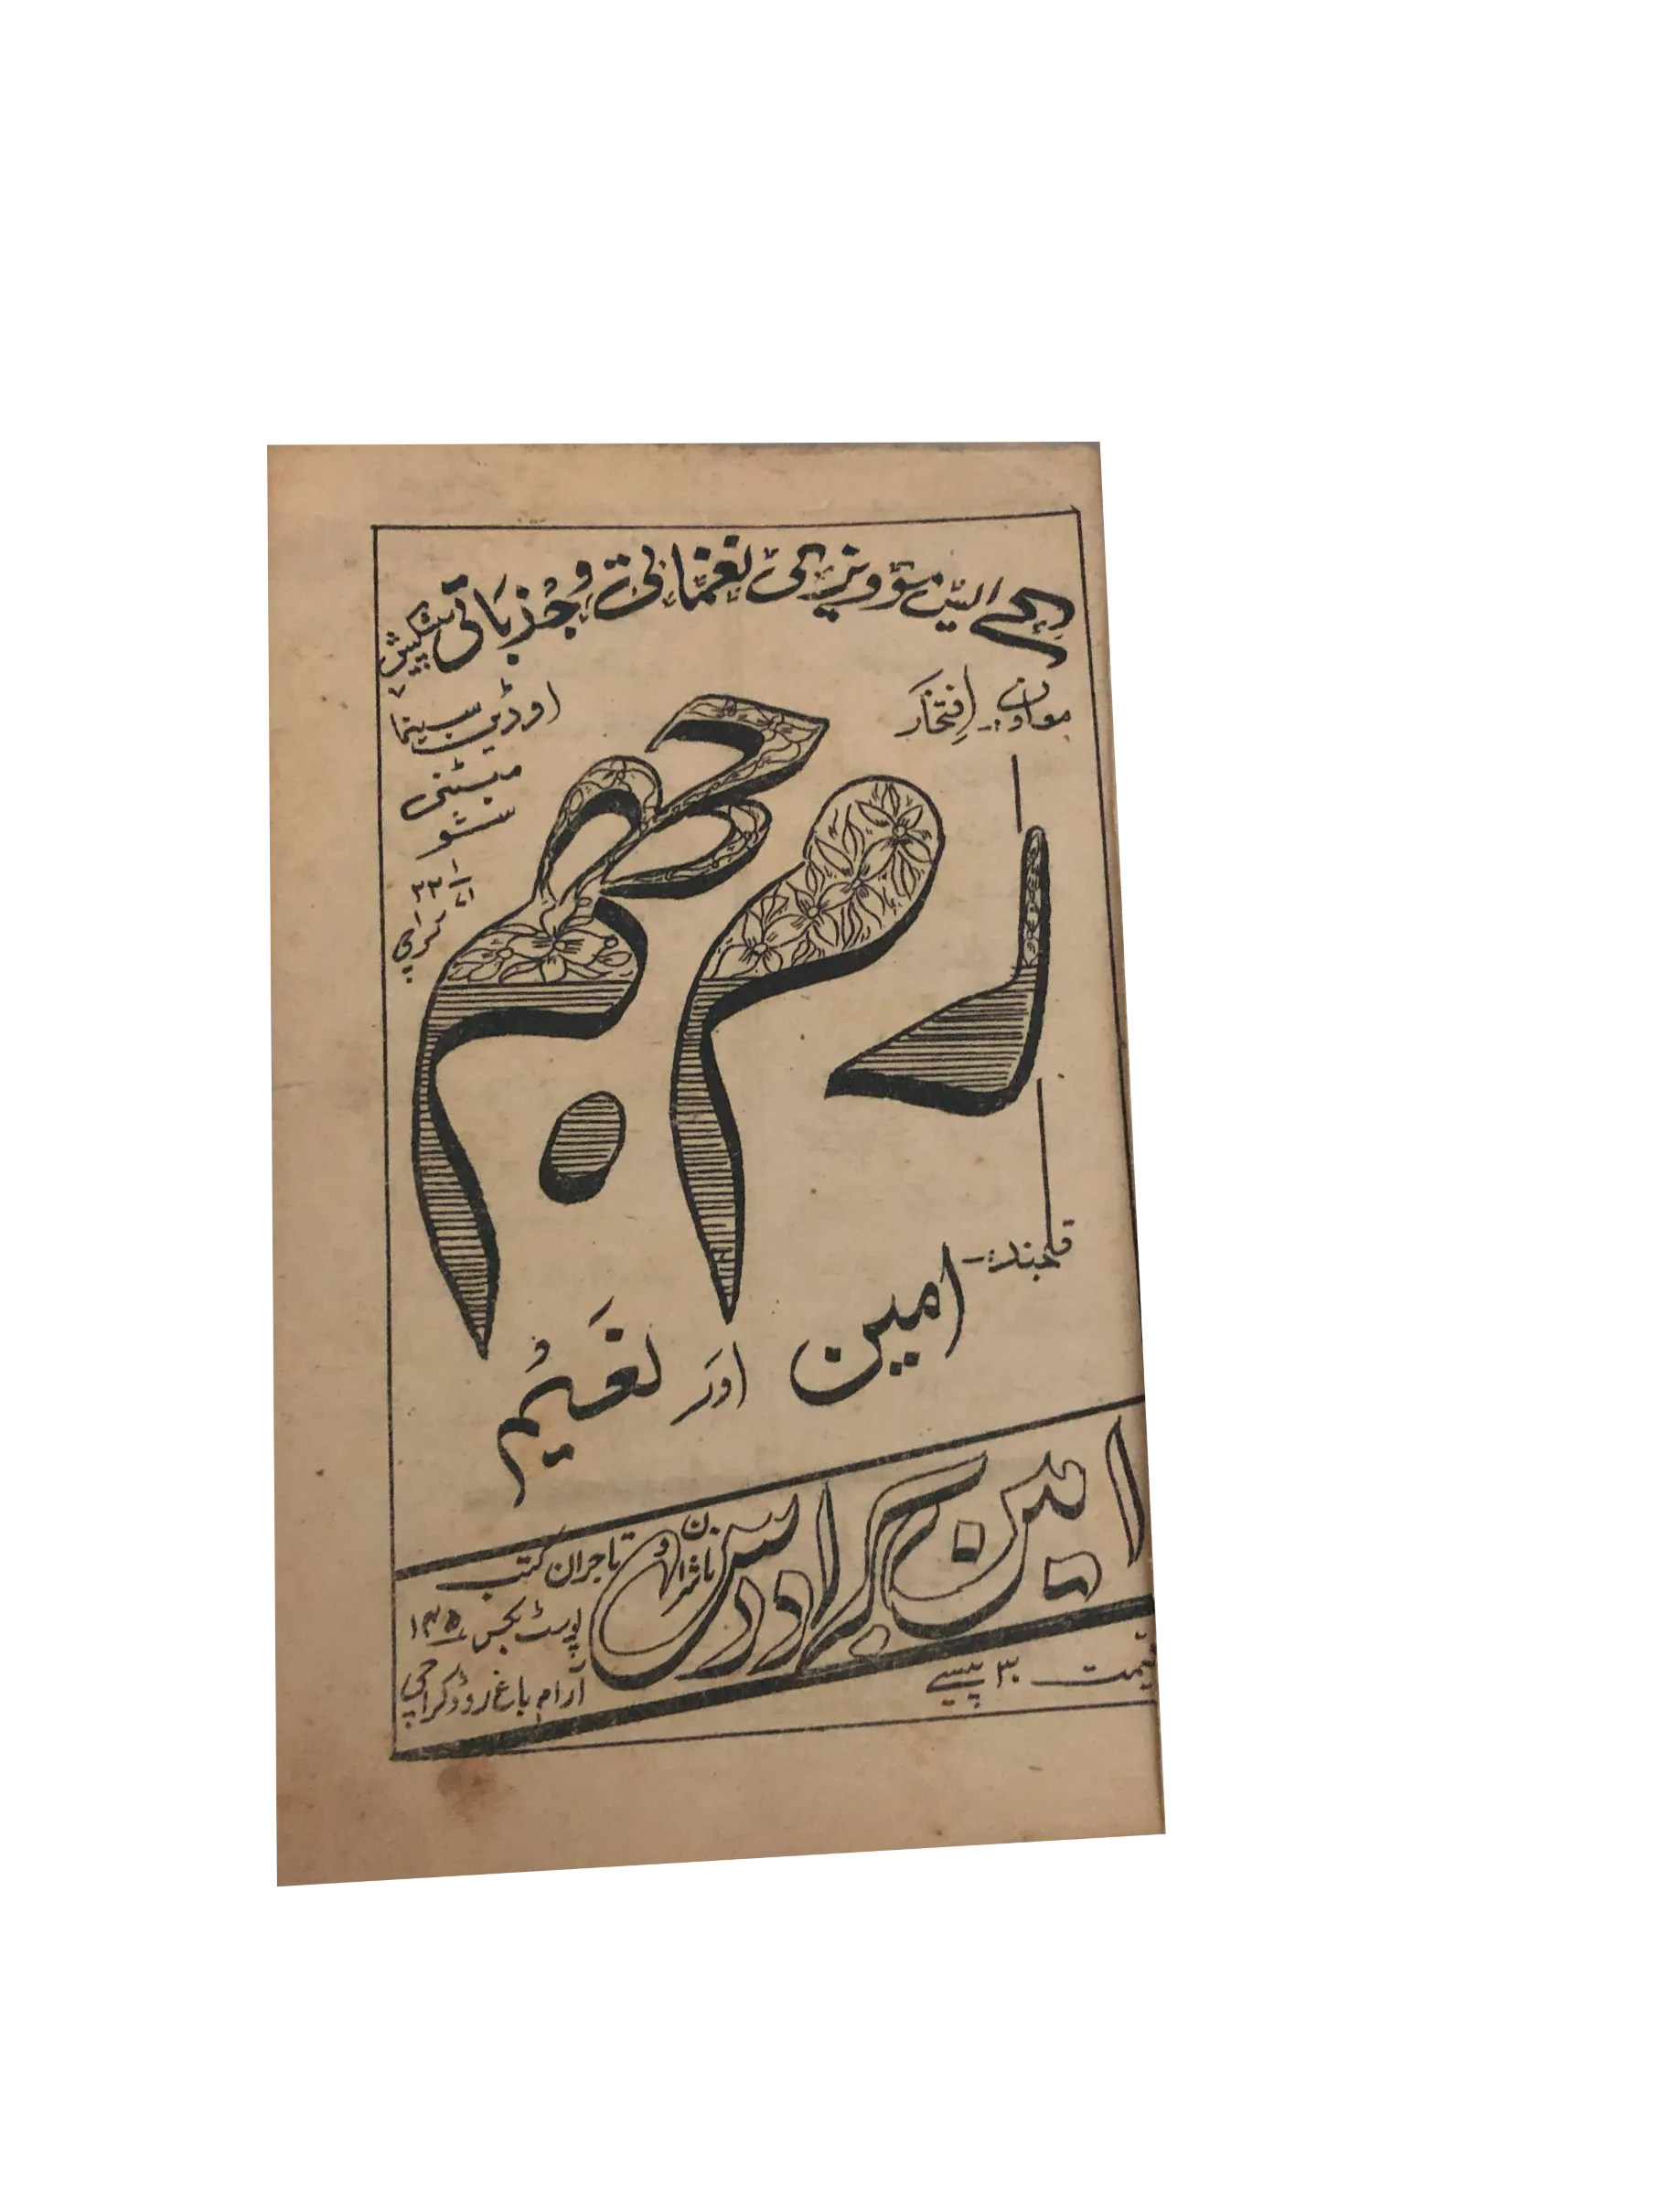 جے ایس موویز کی نغماتی و جذباتی پیشکش
معاون:۔ افتخار
اوڈین سینما
میٹنی
شو
کراچی
رم جھم
قلمبند:۔
امین اور نعیم
امین برادرس
ناشران و تاجران کتب
پوسٹ بکس ۱۳۵
آرام باغ روڈ کراچی
قیمت ۳۰ پیسے